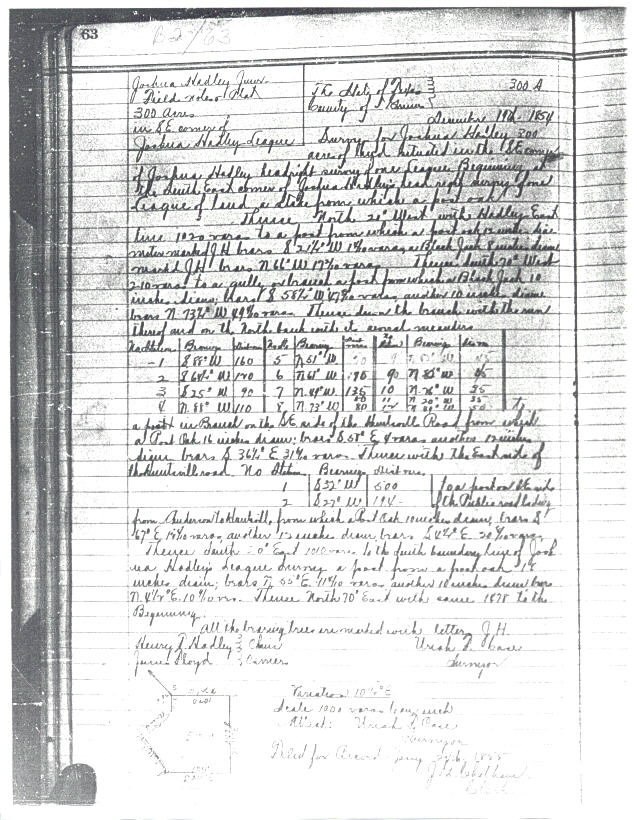 63
B2/63
Joshua Hadley Junr.
Field notes & Plat
300 Acres
in SE corner of
Joshua Hadley League
The State of Texas
County of Grimes
300 A
December 19th 1854
Survey for Joshua Hadley 300
acres of land situated in the SE corner
of Joshua Hadley headright survey of one League Beginning at
the South East corner of Joshua Hadley's head right survey of one
League of land a stake from which a post oak
Thence North 20° West with Hadley East
line 1020 varas to a post from which a post oak 12 inches dia
meter marked J.H. bears S 21½° W varas, a Black Jack 8 inches diam
marked J.H. bears N 66° W 17 varas Thence South 70° West
210 varas to a gully or branch a post from which a Black Jack 10
inches diam; bears S 55½° W 47 varas, another 10 inches diam
bears N. 73½° W 49 varas. Thence down the branch with the run
thereof and on the North bank with its several meanders
Bearing Bearing Bearing
1 S 88° W 160 5 N 51° W
2 S 64½° W 120 6 N 64° W 90 N 85° W
3 S 25° W 90 7 N 49° W 135 10 N 76° W 35
4 N. 88° W 110 8 N. 73° W 80
to
a post in Branch on the SE side of the Huntsville Road from which
a Post Oak 16 inches diam; bears S 57° E 4 varas another 12 inches
diam bears S 36½° E 31 varas. Thence with the East side of
the Huntsville road. No Station Bearing Distance
1 S 32° W 500 to a post on SE side
2 S 27° W 194 of the Public road leading
from Anderson to Huntsville, from which a Post Oak 10 inches diam; bears S
67° E 14 varas, another 12 inches diam; bears 20 varas,
Thence South 20° East 1010 varas to the South boundary line of Josh
ua Hadley's League survey a post from a post oak 14
inches diam; bears N 55° E. 11 varas another 10 inches diam bears
N. 4½° E. 10 vrs. Thence North 70° East with same 1078 to the
Beginning.
All the bearing trees are marked with letters J.H.
Henry Hadley } Chain
James Floyd } Carriers
Uriah Case
Surveyor
Variation 10½° E
Scale 1000 varas to an inch
Attest: Uriah Case
Surveyor
Filed for Record Jany 1855
Clerk